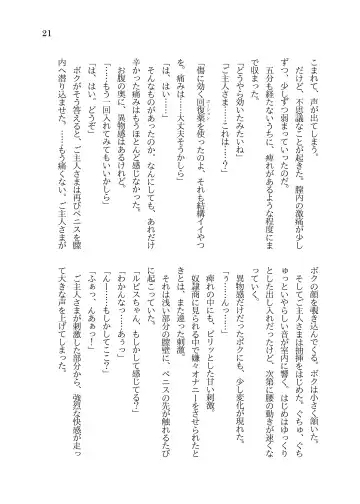 21
こまれて、声が出てしまう。
だけど、不思議なことが起きた。膣内の激痛が少し
ずつ、少しずつ弱まっていったのだ。
五分も経たないうちに、痺れがあるような程度にま
で収まった。
「どうやら効いたみたいね」
「ご主人さま……これは……？」
「傷に効く回復薬を使ったのよ、それも結構イイやつ
を。痛みは……大丈夫そうかしら」
「は、はい……」
そんなものがあったのか。なんにしても、あれだけ
辛かった痛みはもうほとんど感じなかった。
お腹の奥に、異物感はあるけれど。
「……もう一回入れてみてもいいかしら」
「は、はい。どうぞ」
ボクがそう答えると、ご主人さまは再びペニスを膣
内へ潜り込ませた。……もう痛くない。ご主人さまが
ボクの顔を覗き込んでくる。ボクは小さく頷いた。
そしてご主人さまは抽挿をはじめた。ぐちゅ、ぐち
ゅっといやらしい音が室内に響く。はじめはゆっくり
とした出し入れだったけど、次第に腰の動きが速くな
っていく。
異物感だけだったボクにも、少し変化が現れた。
「う……んっ……」
痺れの中にも、ピリッとした甘い刺激。
奴隷商に見られる中で嫌々オナニーをさせられたと
きとは、また違った刺激。
それは浅い部分の膣壁に、ペニスの先が触れるたび
に起こっていた。
「ルビスちゃん、もしかして感じてる？」
「わかんなっ……あぅっ」
「んー……もしかしてここ？」
「ふぁっ、んあぁっ！」
ご主人さまが刺激した部分から、強烈な快感が走っ
て大きな声を上げてしまった。